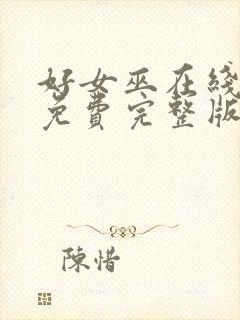 好女巫在线
免费完整版
陳惜